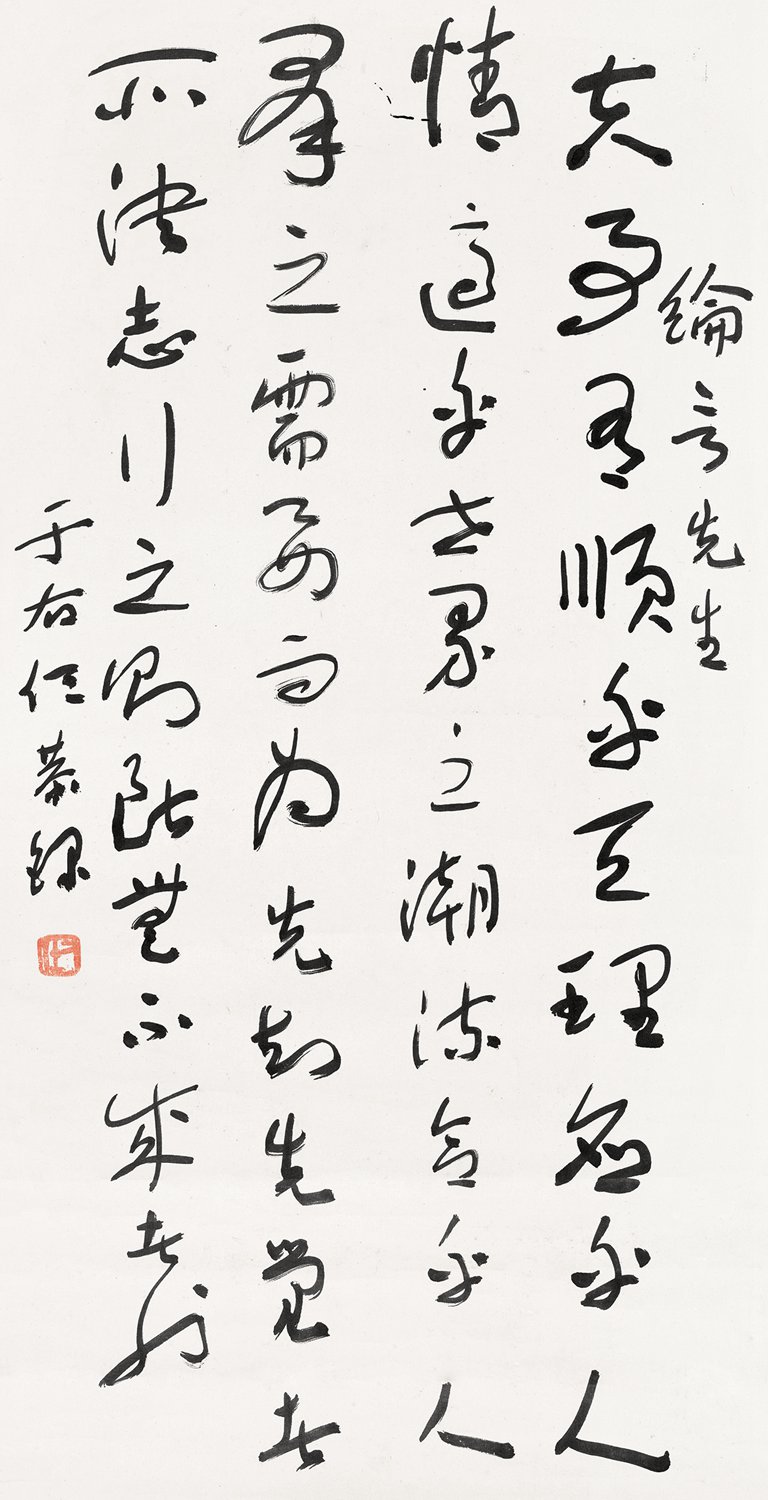 綸言先生
夫事有順乎天理應乎人
情適乎世界之潮流合乎人
羣之需要而為先知先覺者
所決志行之則斷無不成者也
于右任恭錄